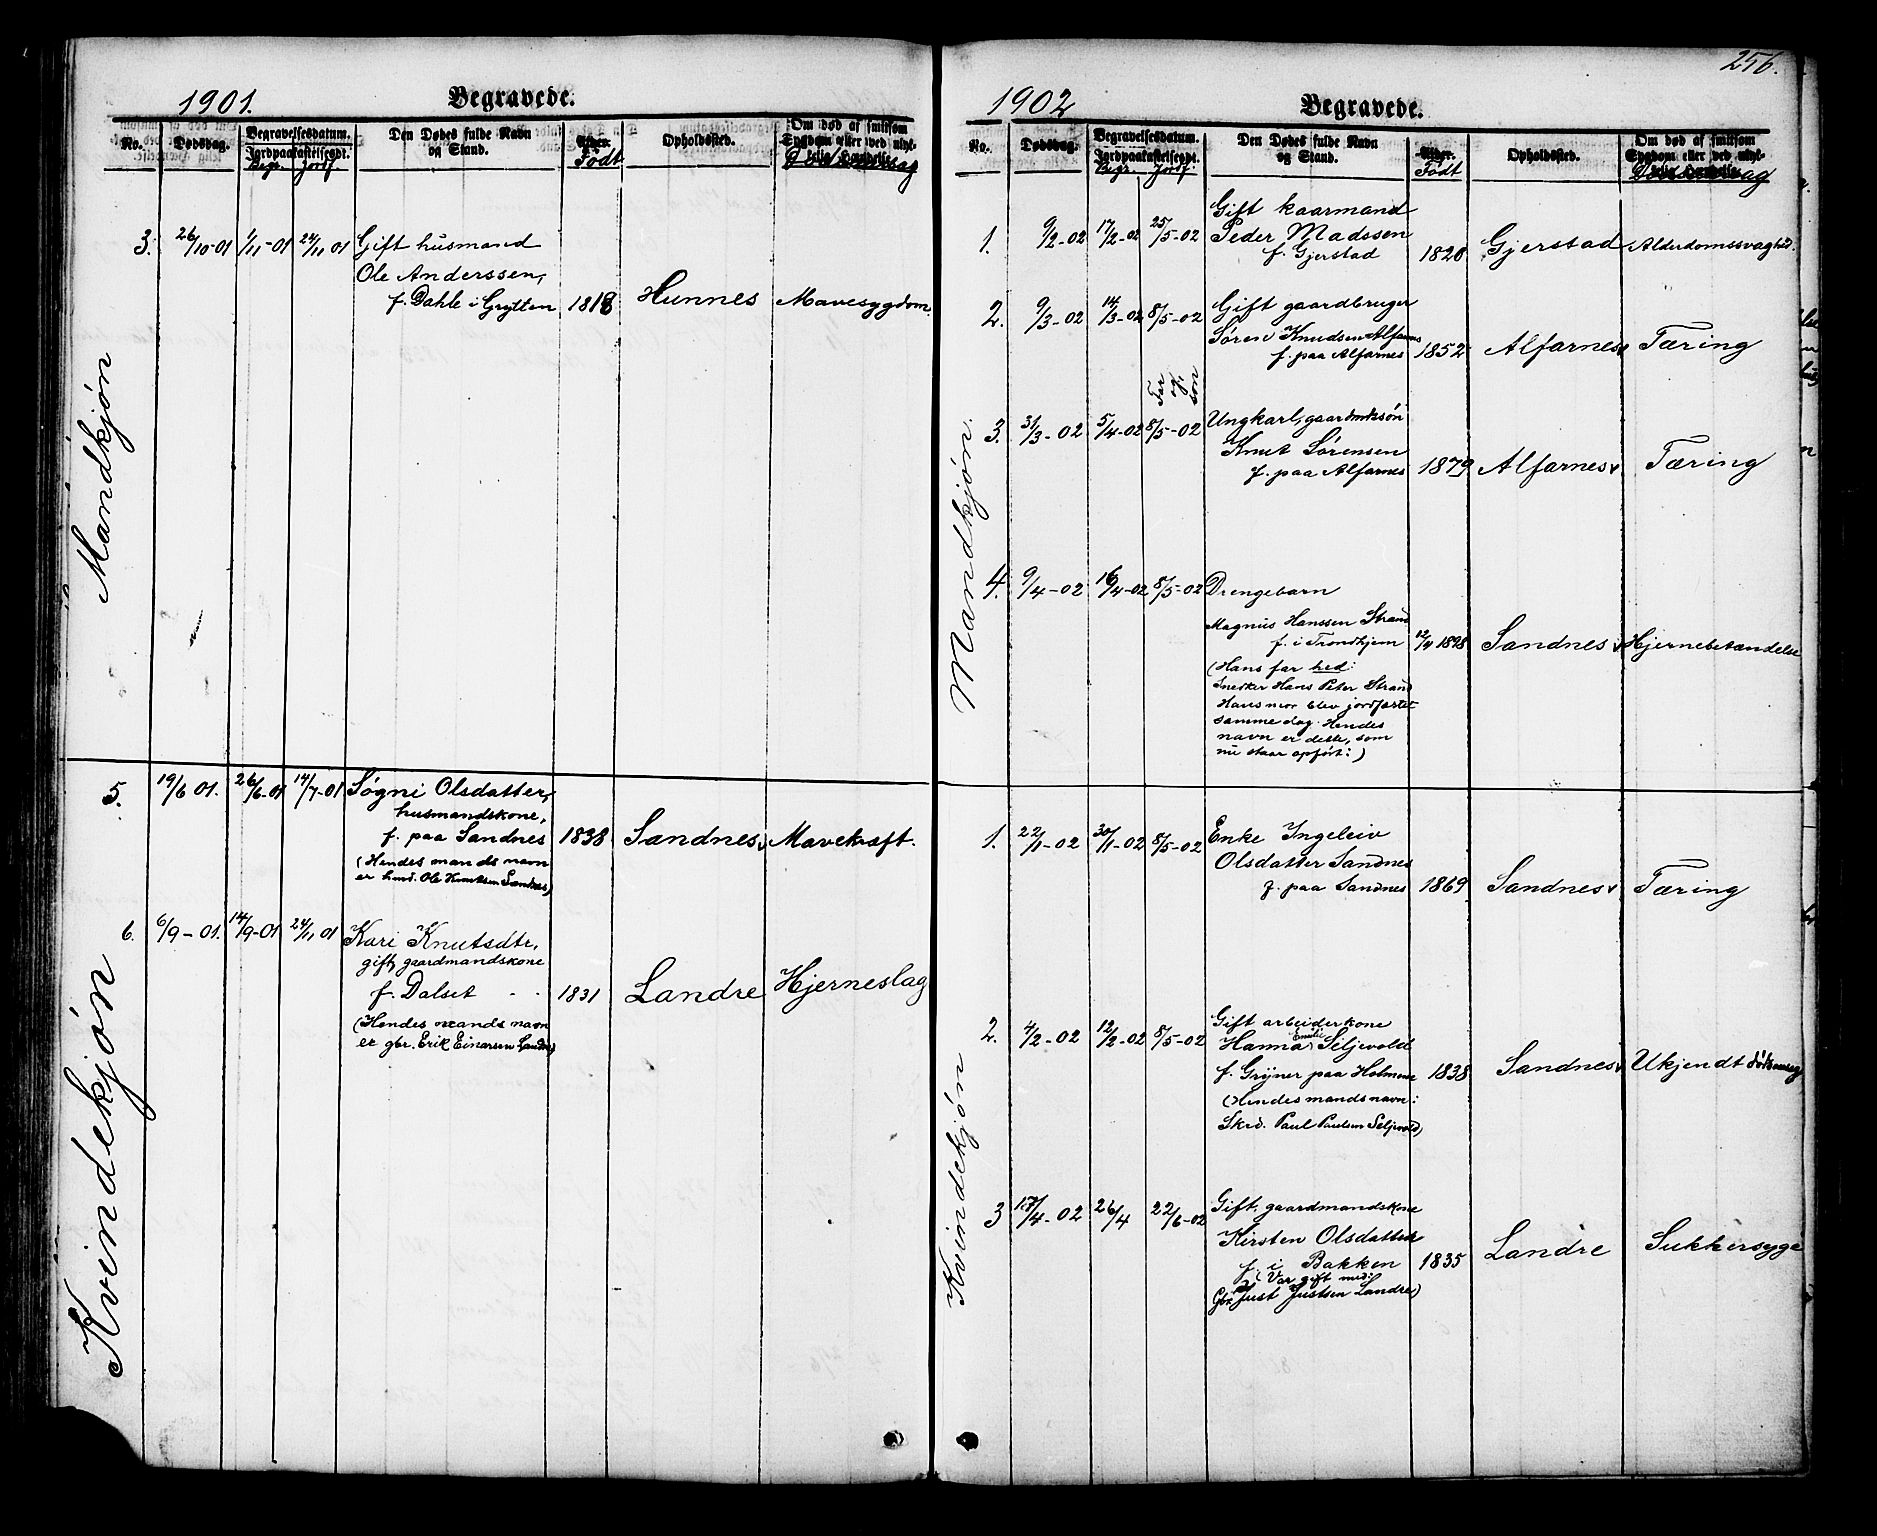 1901.
Begravede.
No.
Dødsdag.
Begravelsesdatum.
Jordpaakastelsesdt.
Begr. Jordf.
Den Dødes fulde Navn
og Stand.
Alder.
Født
Opholdssted.
Om død af smitsom
Sygdom eller ved ulyk-
Dødsaarsag
Mandkjøn
3. 26/10-01 1/11-01 24/11 01 Gift husmand
Ole Anderssen,
f. Dahle i Grytten 1818 Hunnes Mavesygdom.
Kvindekjøn
5. 19/6 01. 26/6-01 14/7-01 Søgni Olsdatter,
husmandskone,
f. paa Sandnes 1838 Sandnes v Mavekræft.
(Hendes mands navn
er husd. Ole Knutsen Sandnes)
6. 6/9-01. 14/9-01 24/11 01 Kari Knutsdtr,
gift, gaardmandskone
f. Dalset 1831 Landre Hjerneslag
(Hendes mands navn
er gbr. Erik Einarsen Landre)
256.
1902
Begravede.
No.
Dødsdag.
Begravelsesdatum.
Jordpaakastelsesdt.
Begr. Jordf.
Den Dødes fulde Navn
og Stand.
Alder.
Født
Opholdssted.
Om død af smitsom
Sygdom eller ved ulyk-
Dødsaarsag
Mandkjøn.
1. 9/2-02 17/2-02 25/5-02 Gift kaarmand
Peder Madssen
f. Gjerstad 1820 Gjerstad Alderdomssvaghed.
2. 9/3-02 14/3-02 8/5-02 Gift gaardbruger
Søren Knudsen Alfarnes
f. paa Alfarnes 1852 Alfarnes v Tæring
Far
og
søn
3. 31/3-02 5/4-02 8/5-02 Ungkarl, gaardmdssøn
Knut Sørensen
f. paa Alfarnes 1879 Alfarnes v Tæring
4. 9/4-02 16/4-02 8/5-02 Drengebarn
Magnus Hanssen Strand
f. i Trondhjem 12/4 1898 Sandnes v Hjernebetændelse
(Hans far hed:
Snedker Hans Peter Strand
Hans mor blev jordfæstet
samme dag. Hendes
navn er dette, som
nu staar opført:)
Kvindekjøn
1. 22/1-02 30/1-02 8/5-02 Enke Ingeleiv
Olsdatter Sandnes
f. paa Sandnes 1869 Sandnes v Tæring
2. 4/2-02 12/2-02 8/5-02 Gift arbeiderkone
Hanna Emilie Seljevold
f. Gryner paa Holmene 1838 Sandnes v Ukjendt dødsaarsag
(Hendes mands navn:
Skrd. Paul Paulsen Seljevold)
3 17/4-02 26/4 22/6-02 Gift, gaardmandskone
Kirsten Olsdatter
f. i Bakken 1835 Landre Sukkersyge
(Var gift med:
Gbr. Just Justsen Landre)